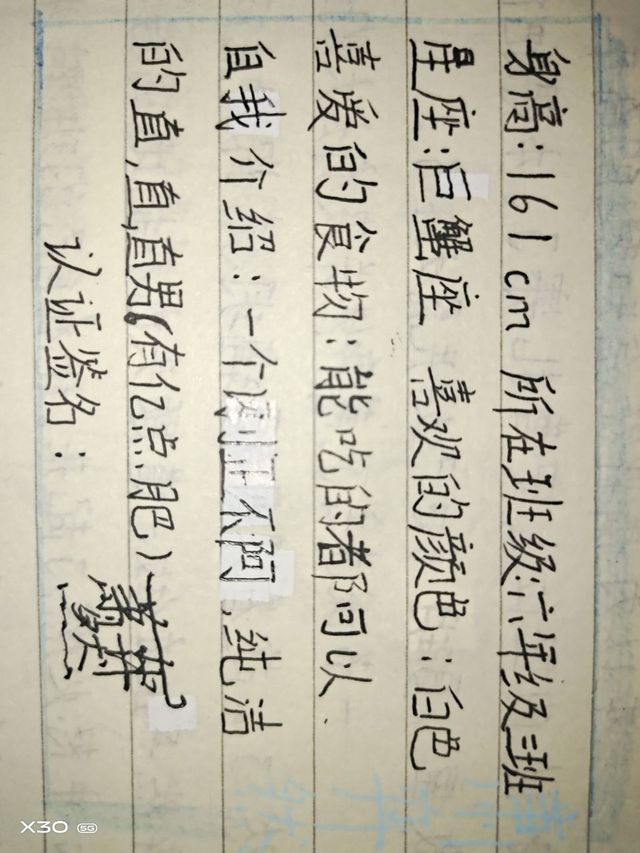 身高:161cm 所在班级:六年级三班
星座:巨蟹座 喜欢的颜色:白色
喜爱的食物:能吃的都可以.
自我介绍:一个刚正不阿,纯洁
的直,直,直男(有亿点肥)
认证签名:
X30 5G